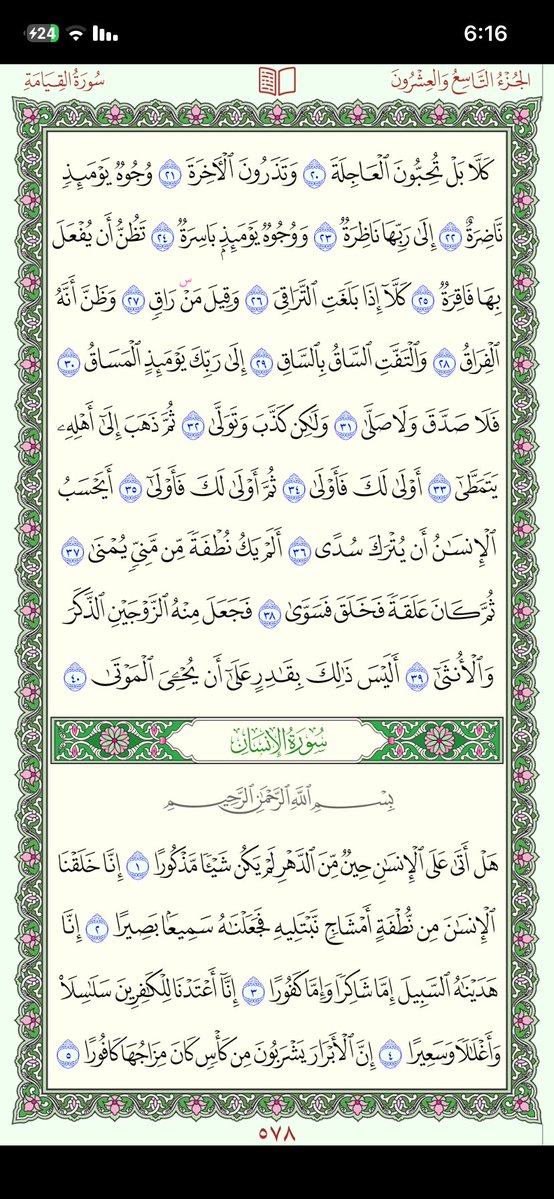 6:16
24
الجُزْءُ التَّاسِعُ وَالعِشْرُونَ
سُورَةُ القِيَامَةِ
كَلَّا بَلْ تُحِبُّونَ ٱلْعَاجِلَةَ ٢٠ وَتَذَرُونَ ٱلْأٓخِرَةَ ٢١ وُجُوهٞ يَوْمَئِذٖ
نَّاضِرَةٌ ٢٢ إِلَىٰ رَبِّهَا نَاظِرَةٞ ٢٣ وَوُجُوهٞ يَوْمَئِذِۭ بَاسِرَةٞ ٢٤ تَظُنُّ أَن يُفْعَلَ
بِهَا فَاقِرَةٞ ٢٥ كَلَّآ إِذَا بَلَغَتِ ٱلتَّرَاقِيَ ٢٦ وَقِيلَ مَنْۜ رَاقٖ ٢٧ وَظَنَّ أَنَّهُ
ٱلْفِرَاقُ ٢٨ وَٱلْتَفَّتِ ٱلسَّاقُ بِٱلسَّاقِ ٢٩ إِلَىٰ رَبِّكَ يَوْمَئِذٍ ٱلْمَسَاقُ ٣٠
فَلَا صَدَّقَ وَلَا صَلَّىٰ ٣١ وَلَٰكِن كَذَّبَ وَتَوَلَّىٰ ٣٢ ثُمَّ ذَهَبَ إِلَىٰٓ أَهْلِهِۦ
يَتَمَطَّىٰٓ ٣٣ أَوْلَىٰ لَكَ فَأَوْلَىٰ ٣٤ ثُمَّ أَوْلَىٰ لَكَ فَأَوْلَىٰٓ ٣٥ أَيَحْسَبُ
ٱلْإِنسَٰنُ أَن يُتْرَكَ سُدًى ٣٦ أَلَمْ يَكُ نُطْفَةٗ مِّن مَّنِيّٖ يُمْنَىٰ ٣٧
ثُمَّ كَانَ عَلَقَةٗ فَخَلَقَ فَسَوَّىٰ ٣٨ فَجَعَلَ مِنْهُ ٱلزَّوْجَيْنِ ٱلذَّكَرَ
وَٱلْأُنثَىٰٓ ٣٩ أَلَيْسَ ذَٰلِكَ بِقَٰدِرٍ عَلَىٰٓ أَن يُحْـِۧيَ ٱلْمَوْتَىٰ ٤٠
سُورَةُ الإِنسَانِ
بِسْمِ ٱللَّهِ ٱلرَّحْمَٰنِ ٱلرَّحِيمِ
هَلْ أَتَىٰ عَلَى ٱلْإِنسَٰنِ حِينٞ مِّنَ ٱلدَّهْرِ لَمْ يَكُن شَيْـٔٗا مَّذْكُورًا ١ إِنَّا خَلَقْنَا
ٱلْإِنسَٰنَ مِن نُّطْفَةٍ أَمْشَاجٖ نَّبْتَلِيهِ فَجَعَلْنَٰهُ سَمِيعَۢا بَصِيرًا ٢ إِنَّا
هَدَيْنَٰهُ ٱلسَّبِيلَ إِمَّا شَاكِرٗا وَإِمَّا كَفُورًا ٣ إِنَّآ أَعْتَدْنَا لِلْكَٰفِرِينَ سَلَٰسِلَاْ
وَأَغْلَٰلٗا وَسَعِيرًا ٤ إِنَّ ٱلْأَبْرَارَ يَشْرَبُونَ مِن كَأْسٖ كَانَ مِزَاجُهَا كَافُورًا ٥
٥٧٨